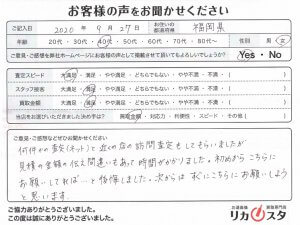 お客様の声をお聞かせください
ご記入日 2020年9月27日 お住いの都道府県 福岡県
年齢 20代・30代・40代・50代・60代・70代・80代〜 性別 男・女
ご意見・ご感想を弊社ホームページにお客様の声として掲載させて頂いてもよろしいでしょうか? Yes・No
査定スピード 大満足・満足・やや満足・どちらでもない・やや不満・不満
スタッフ接客 大満足・満足・やや満足・どちらでもない・やや不満・不満
買取金額 大満足・満足・やや満足・どちらでもない・やや不満・不満
当店をお選びいただきました決め手は? 買取金額・対応力・利便性・スピード・その他
ご意見・ご感想などぜひお聞かせください
何件かの査定(ネット)と近くの店の訪問査定もしてもらいましたが
見積の金額の伝え間違いもあって時間がかかりました。初めからこちらに
お願いしてれば…と後悔しました。次からはすぐにこちらにお願いしよう
と思います。
ご協力ありがとうございました。
この度は誠にありがとうございました。
お酒楽器 買取専門店
リカスタ